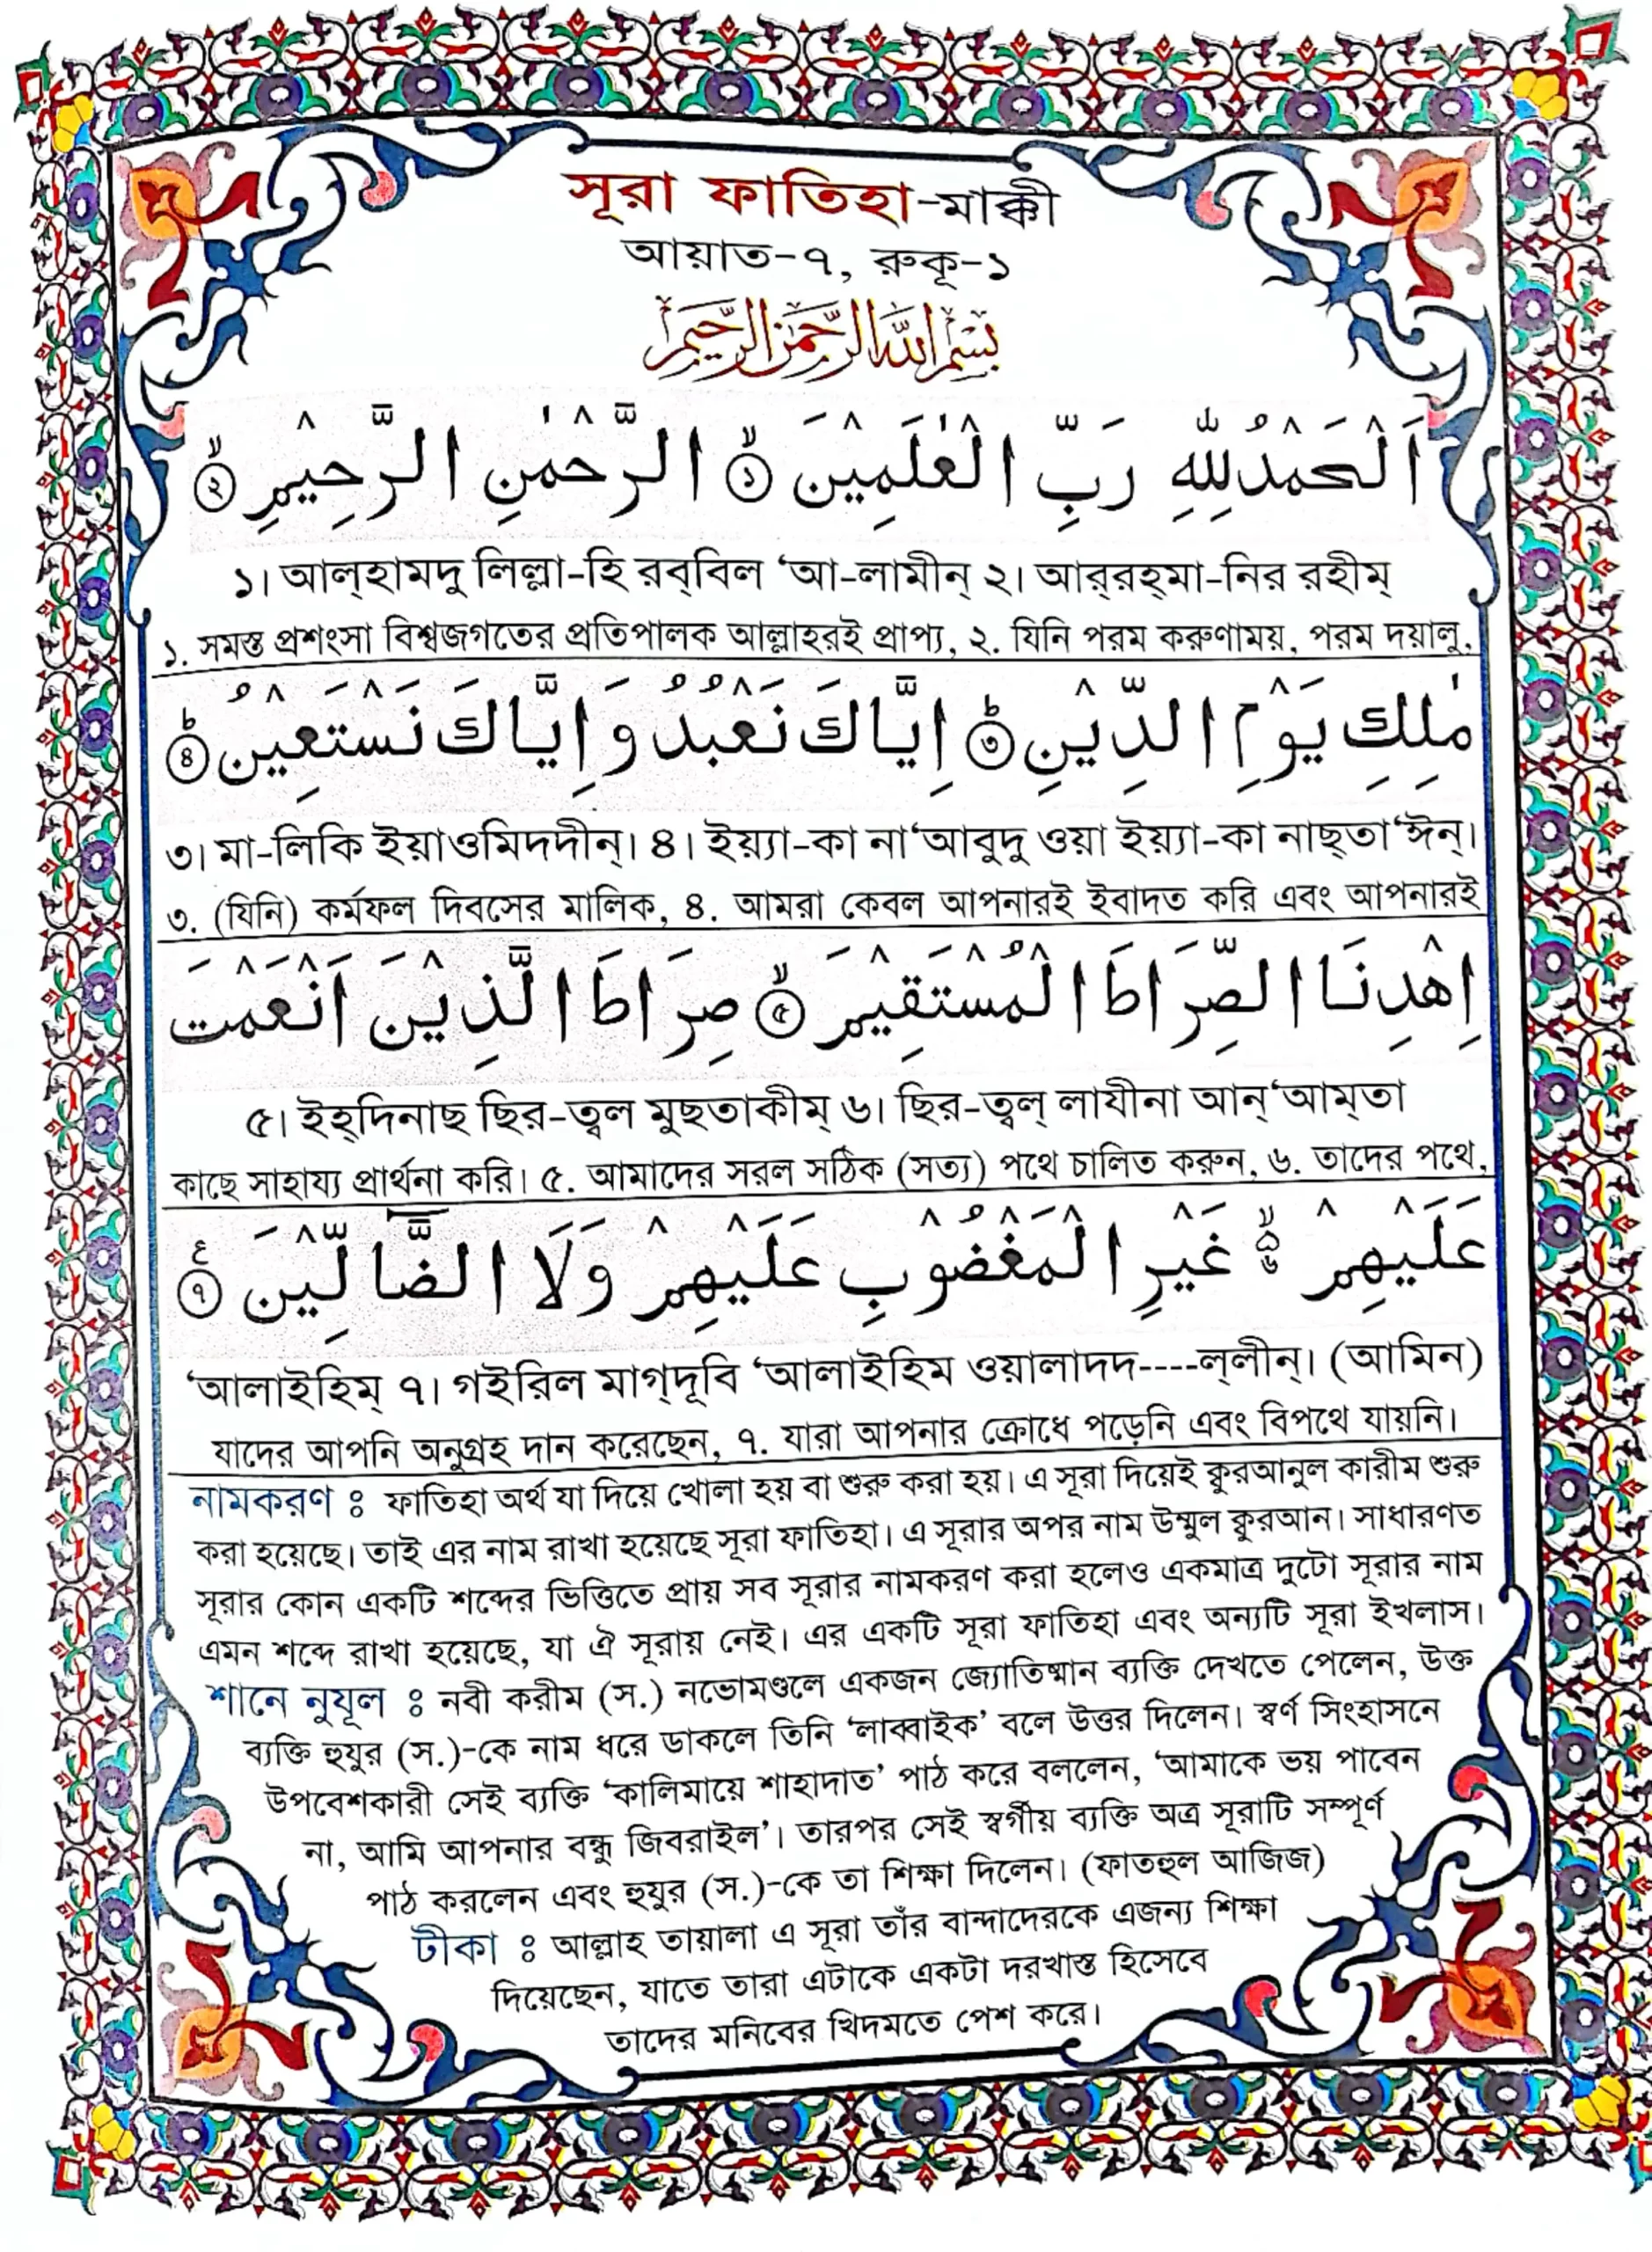 সূরা ফাতিহা-মাক্কী
আয়াত-৭, রুকূ-১
بِسْمِ اللهِ الرَّحْمٰنِ الرَّحِيْمِ
اَلْحَمْدُ لِلّٰهِ رَبِّ الْعٰلَمِيْنَ ۙ﴿١﴾ الرَّحْمٰنِ الرَّحِيْمِ ۙ﴿٢﴾
১। আল্‌হামদু লিল্লা-হি রব্‌বিল ‘আ-লামীন্ ২। আর্‌রহ্‌মা-নির রহীম্
১. সমস্ত প্রশংসা বিশ্বজগতের প্রতিপালক আল্লাহরই প্রাপ্য, ২. যিনি পরম করুণাময়, পরম দয়ালু,
مٰلِكِ يَوْمِ الدِّيْنِ ؕ﴿٣﴾ اِيَّاكَ نَعْبُدُ وَاِيَّاكَ نَسْتَعِيْنُ ؕ﴿٤﴾
৩। মা-লিকি ইয়াওমিদদীন্। ৪। ইয়্যা-কা না‘আবুদু ওয়া ইয়্যা-কা নাছ্‌তা‘ঈন্।
৩. (যিনি) কর্মফল দিবসের মালিক, ৪. আমরা কেবল আপনারই ইবাদত করি এবং আপনারই
اِهْدِنَا الصِّرَاطَ الْمُسْتَقِيْمَ ۙ﴿٥﴾ صِرَاطَ الَّذِيْنَ اَنْعَمْتَ
৫। ইহ্‌দিনাছ ছির-ত্বল মুছতাকীম্ ৬। ছির-ত্বল্ লাযীনা আন্‌‘আম্‌তা
কাছে সাহায্য প্রার্থনা করি। ৫. আমাদের সরল সঠিক (সত্য) পথে চালিত করুন, ৬. তাদের পথে,
عَلَيْهِمْ ۙ۬﴿٦﴾ غَيْرِ الْمَغْضُوْبِ عَلَيْهِمْ وَلَا الضَّآلِّيْنَ ﴿٧﴾ ع
‘আলাইহিম্ ৭। গইরিল মাগ্‌দূবি ‘আলাইহিম ওয়ালাদদ----ল্‌লীন্। (আমিন)
যাদের আপনি অনুগ্রহ দান করেছেন, ৭. যারা আপনার ক্রোধে পড়েনি এবং বিপথে যায়নি।
নামকরণ ঃ ফাতিহা অর্থ যা দিয়ে খোলা হয় বা শুরু করা হয়। এ সূরা দিয়েই কুরআনুল কারীম শুরু
করা হয়েছে। তাই এর নাম রাখা হয়েছে সূরা ফাতিহা। এ সূরার অপর নাম উম্মুল কুরআন। সাধারণত
সূরার কোন একটি শব্দের ভিত্তিতে প্রায় সব সূরার নামকরণ করা হলেও একমাত্র দুটো সূরার নাম
এমন শব্দে রাখা হয়েছে, যা ঐ সূরায় নেই। এর একটি সূরা ফাতিহা এবং অন্যটি সূরা ইখলাস।
শানে নুযূল ঃ নবী করীম (স.) নভোমণ্ডলে একজন জ্যোতিষ্মান ব্যক্তি দেখতে পেলেন, উক্ত
ব্যক্তি হুযুর (স.)-কে নাম ধরে ডাকলে তিনি ‘লাব্বাইক’ বলে উত্তর দিলেন। স্বর্ণ সিংহাসনে
উপবেশকারী সেই ব্যক্তি ‘কালিমায়ে শাহাদাত’ পাঠ করে বললেন, ‘আমাকে ভয় পাবেন
না, আমি আপনার বন্ধু জিবরাইল’। তারপর সেই স্বর্গীয় ব্যক্তি অত্র সূরাটি সম্পূর্ণ
পাঠ করলেন এবং হুযুর (স.)-কে তা শিক্ষা দিলেন। (ফাতহুল আজিজ)
টীকা ঃ আল্লাহ তায়ালা এ সূরা তাঁর বান্দাদেরকে এজন্য শিক্ষা
দিয়েছেন, যাতে তারা এটাকে একটা দরখাস্ত হিসেবে
তাদের মনিবের খিদমতে পেশ করে।